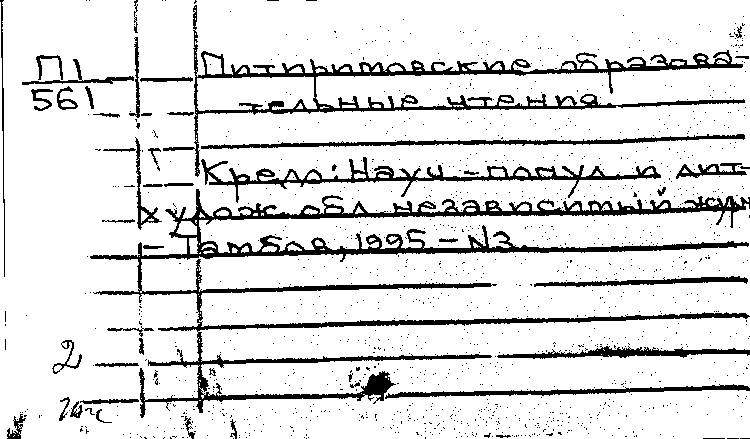 П1
561
Питиримовские образова-
тельные чтения.
Кредо: Науч-попул и лит-
худож. обл. независимый журн
- Тамбов, 1995 - N3.
2